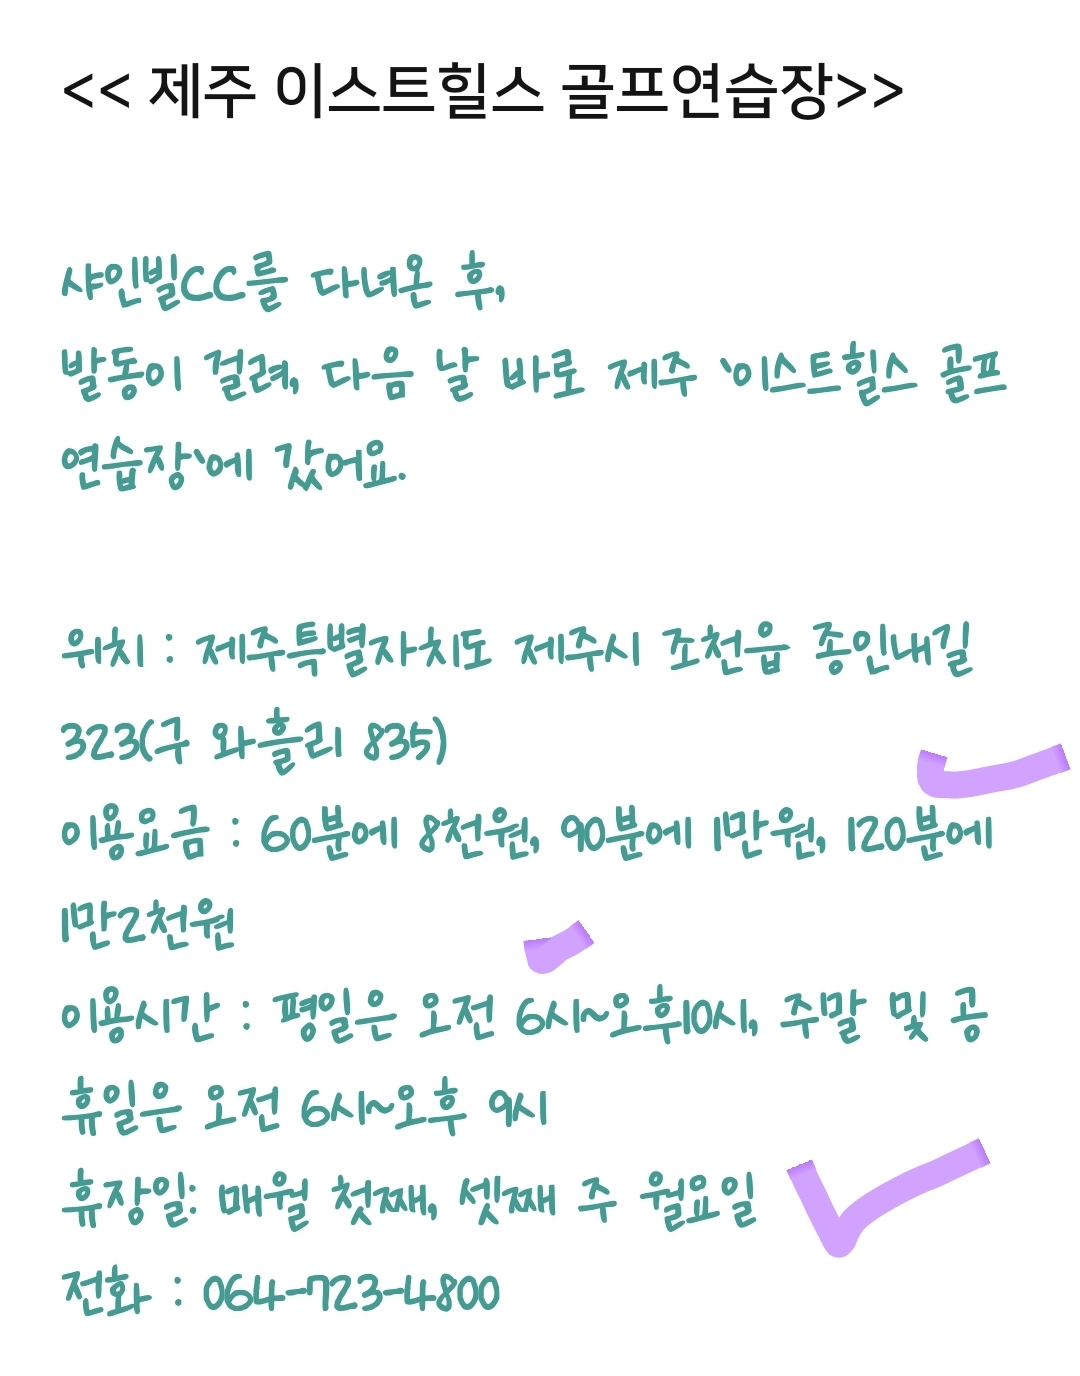 << 제주 이스트힐스 골프연습장>>
샤인빌CC를 다녀온 후,
발동이 걸려, 다음 날 바로 제주 '이스트힐스 골프
연습장'에 갔어요.
위치 : 제주특별자치도 제주시 조천읍 종인내길
323(구 와흘리 835)
이용요금 : 60분에 8천원, 90분에 1만원, 120분에
1만2천원
이용시간 : 평일은 오전 6시~오후10시, 주말 및 공
휴일은 오전 6시~오후 9시
휴장일: 매월 첫째, 셋째 주 월요일
전화 : 064-723-4800